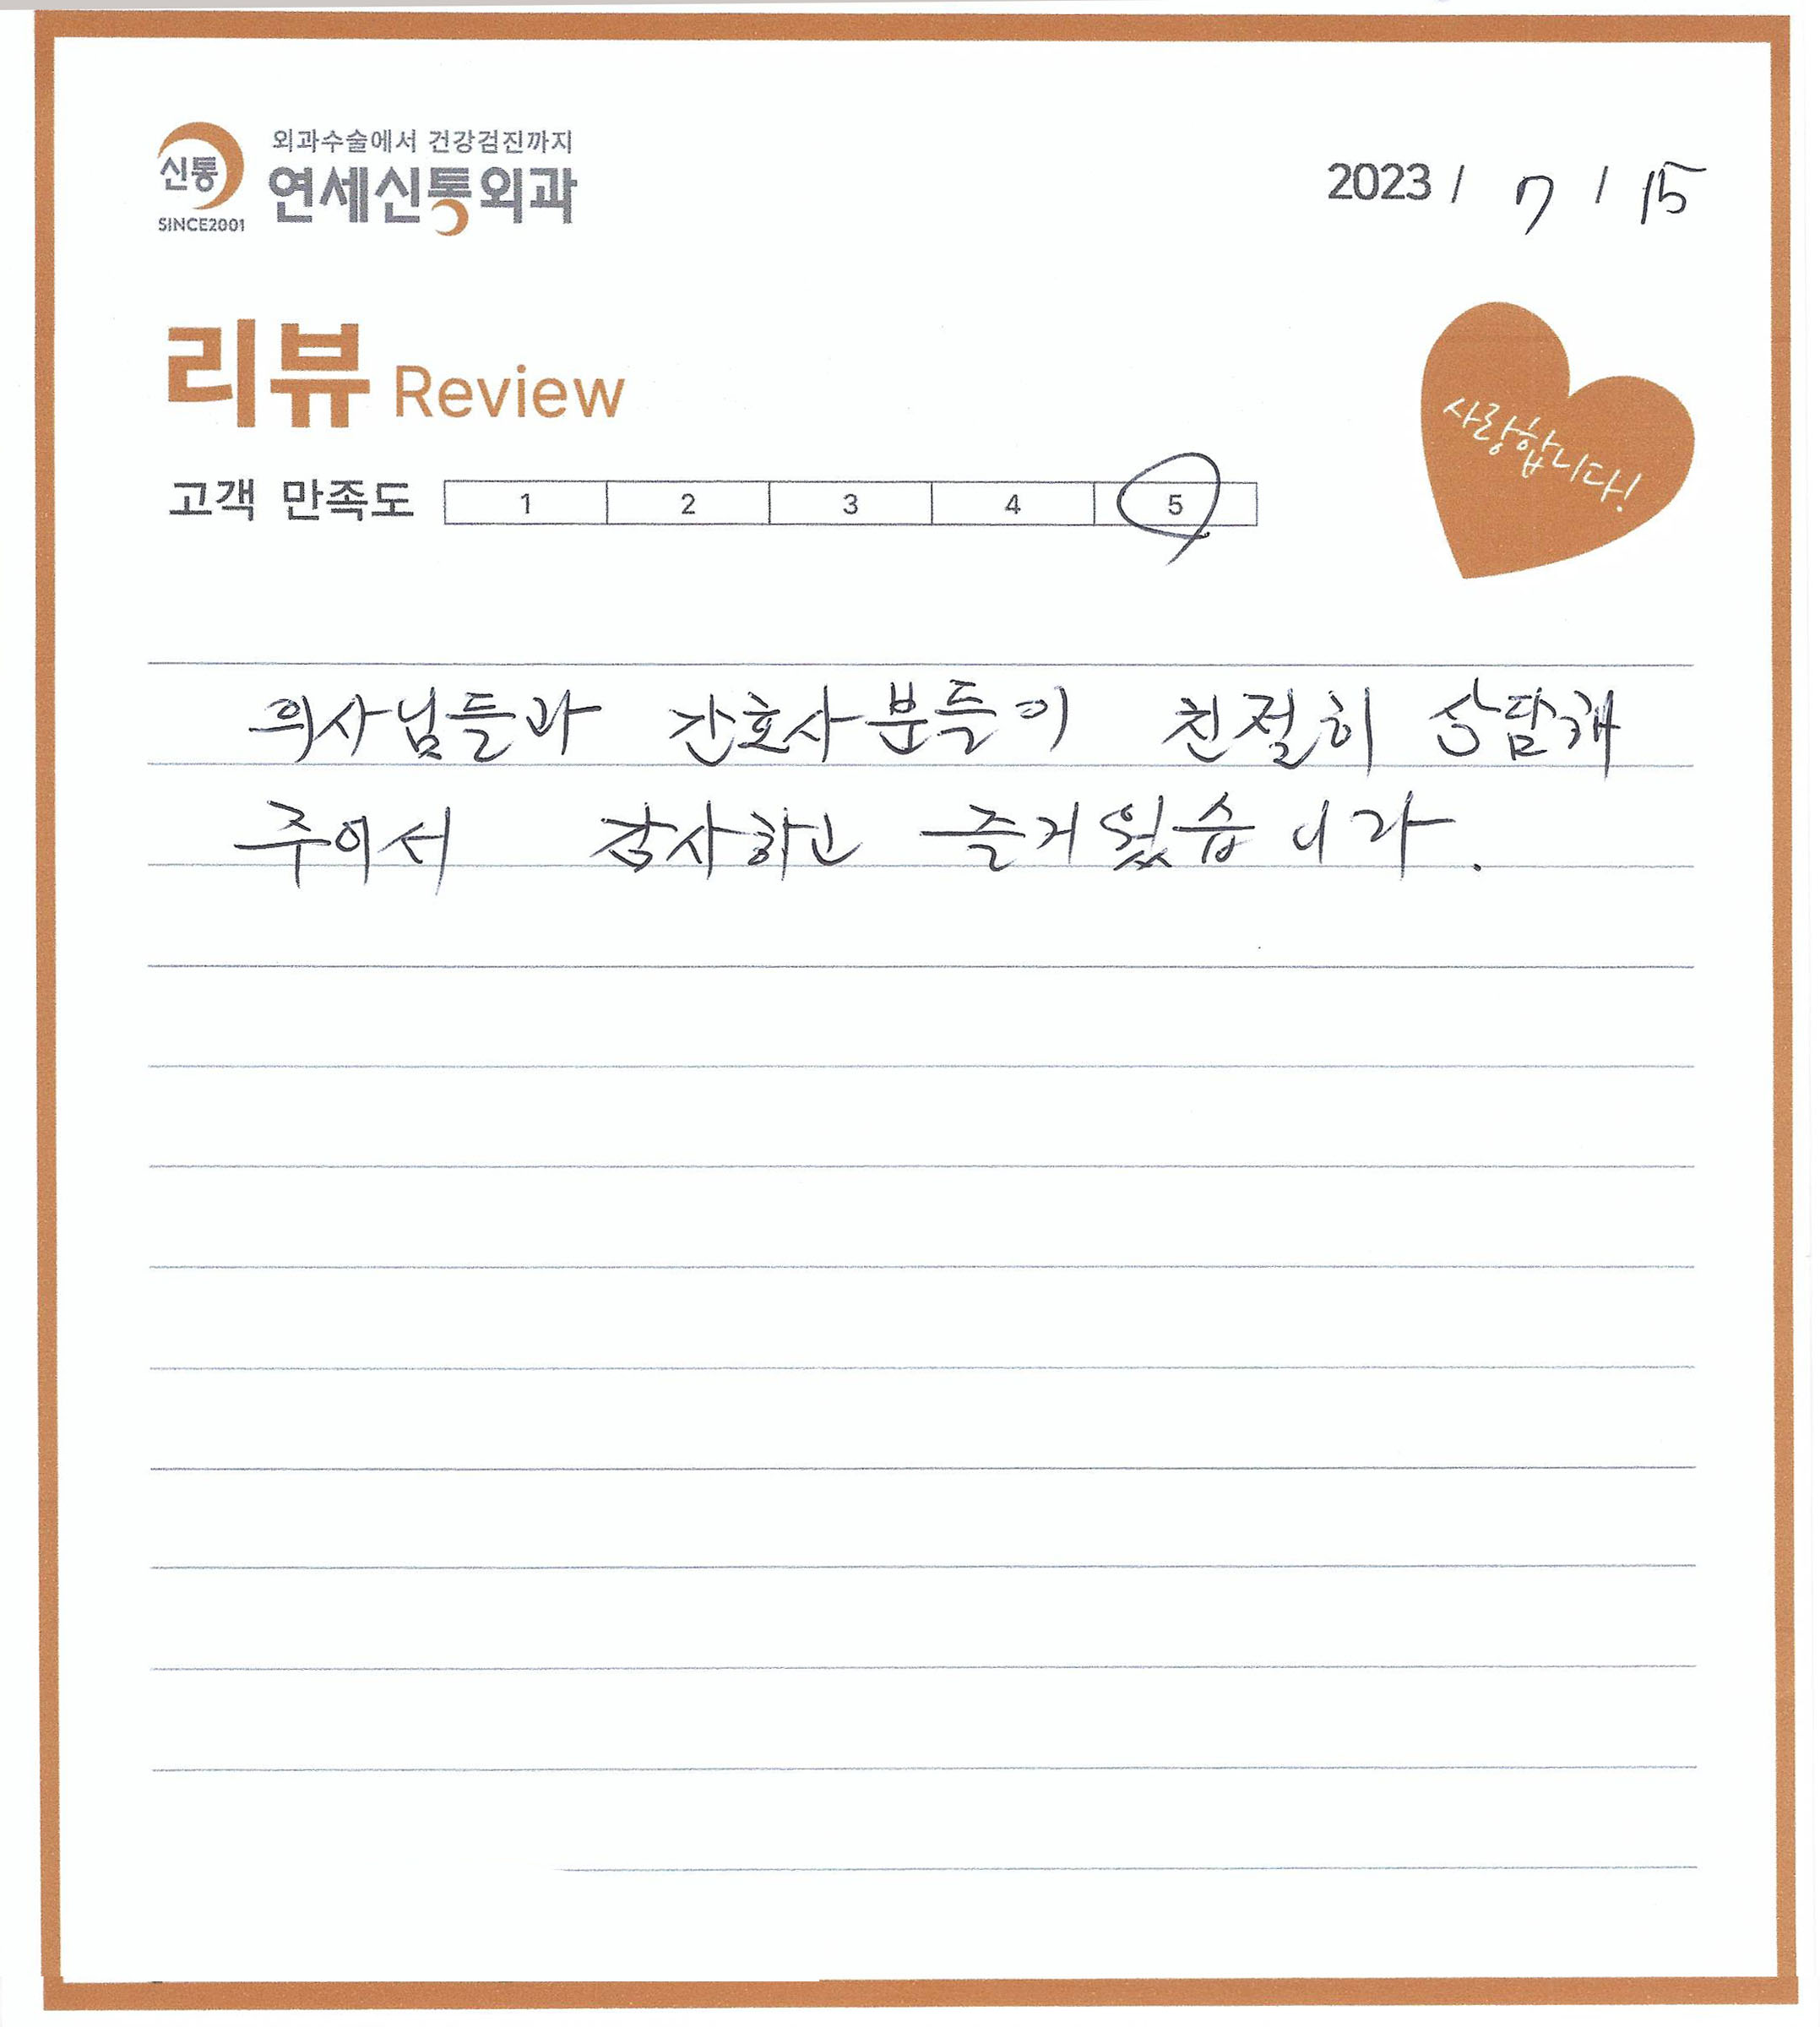 신통
SINCE2001
외과수술에서 건강검진까지
연세신통외과
2023 / 7 / 15
리뷰 Review
사랑합니다!
고객 만족도 1 2 3 4 5
의사님들과 간호사분들이 친절히 상담해
주어서 감사하고 즐거웠습니다.